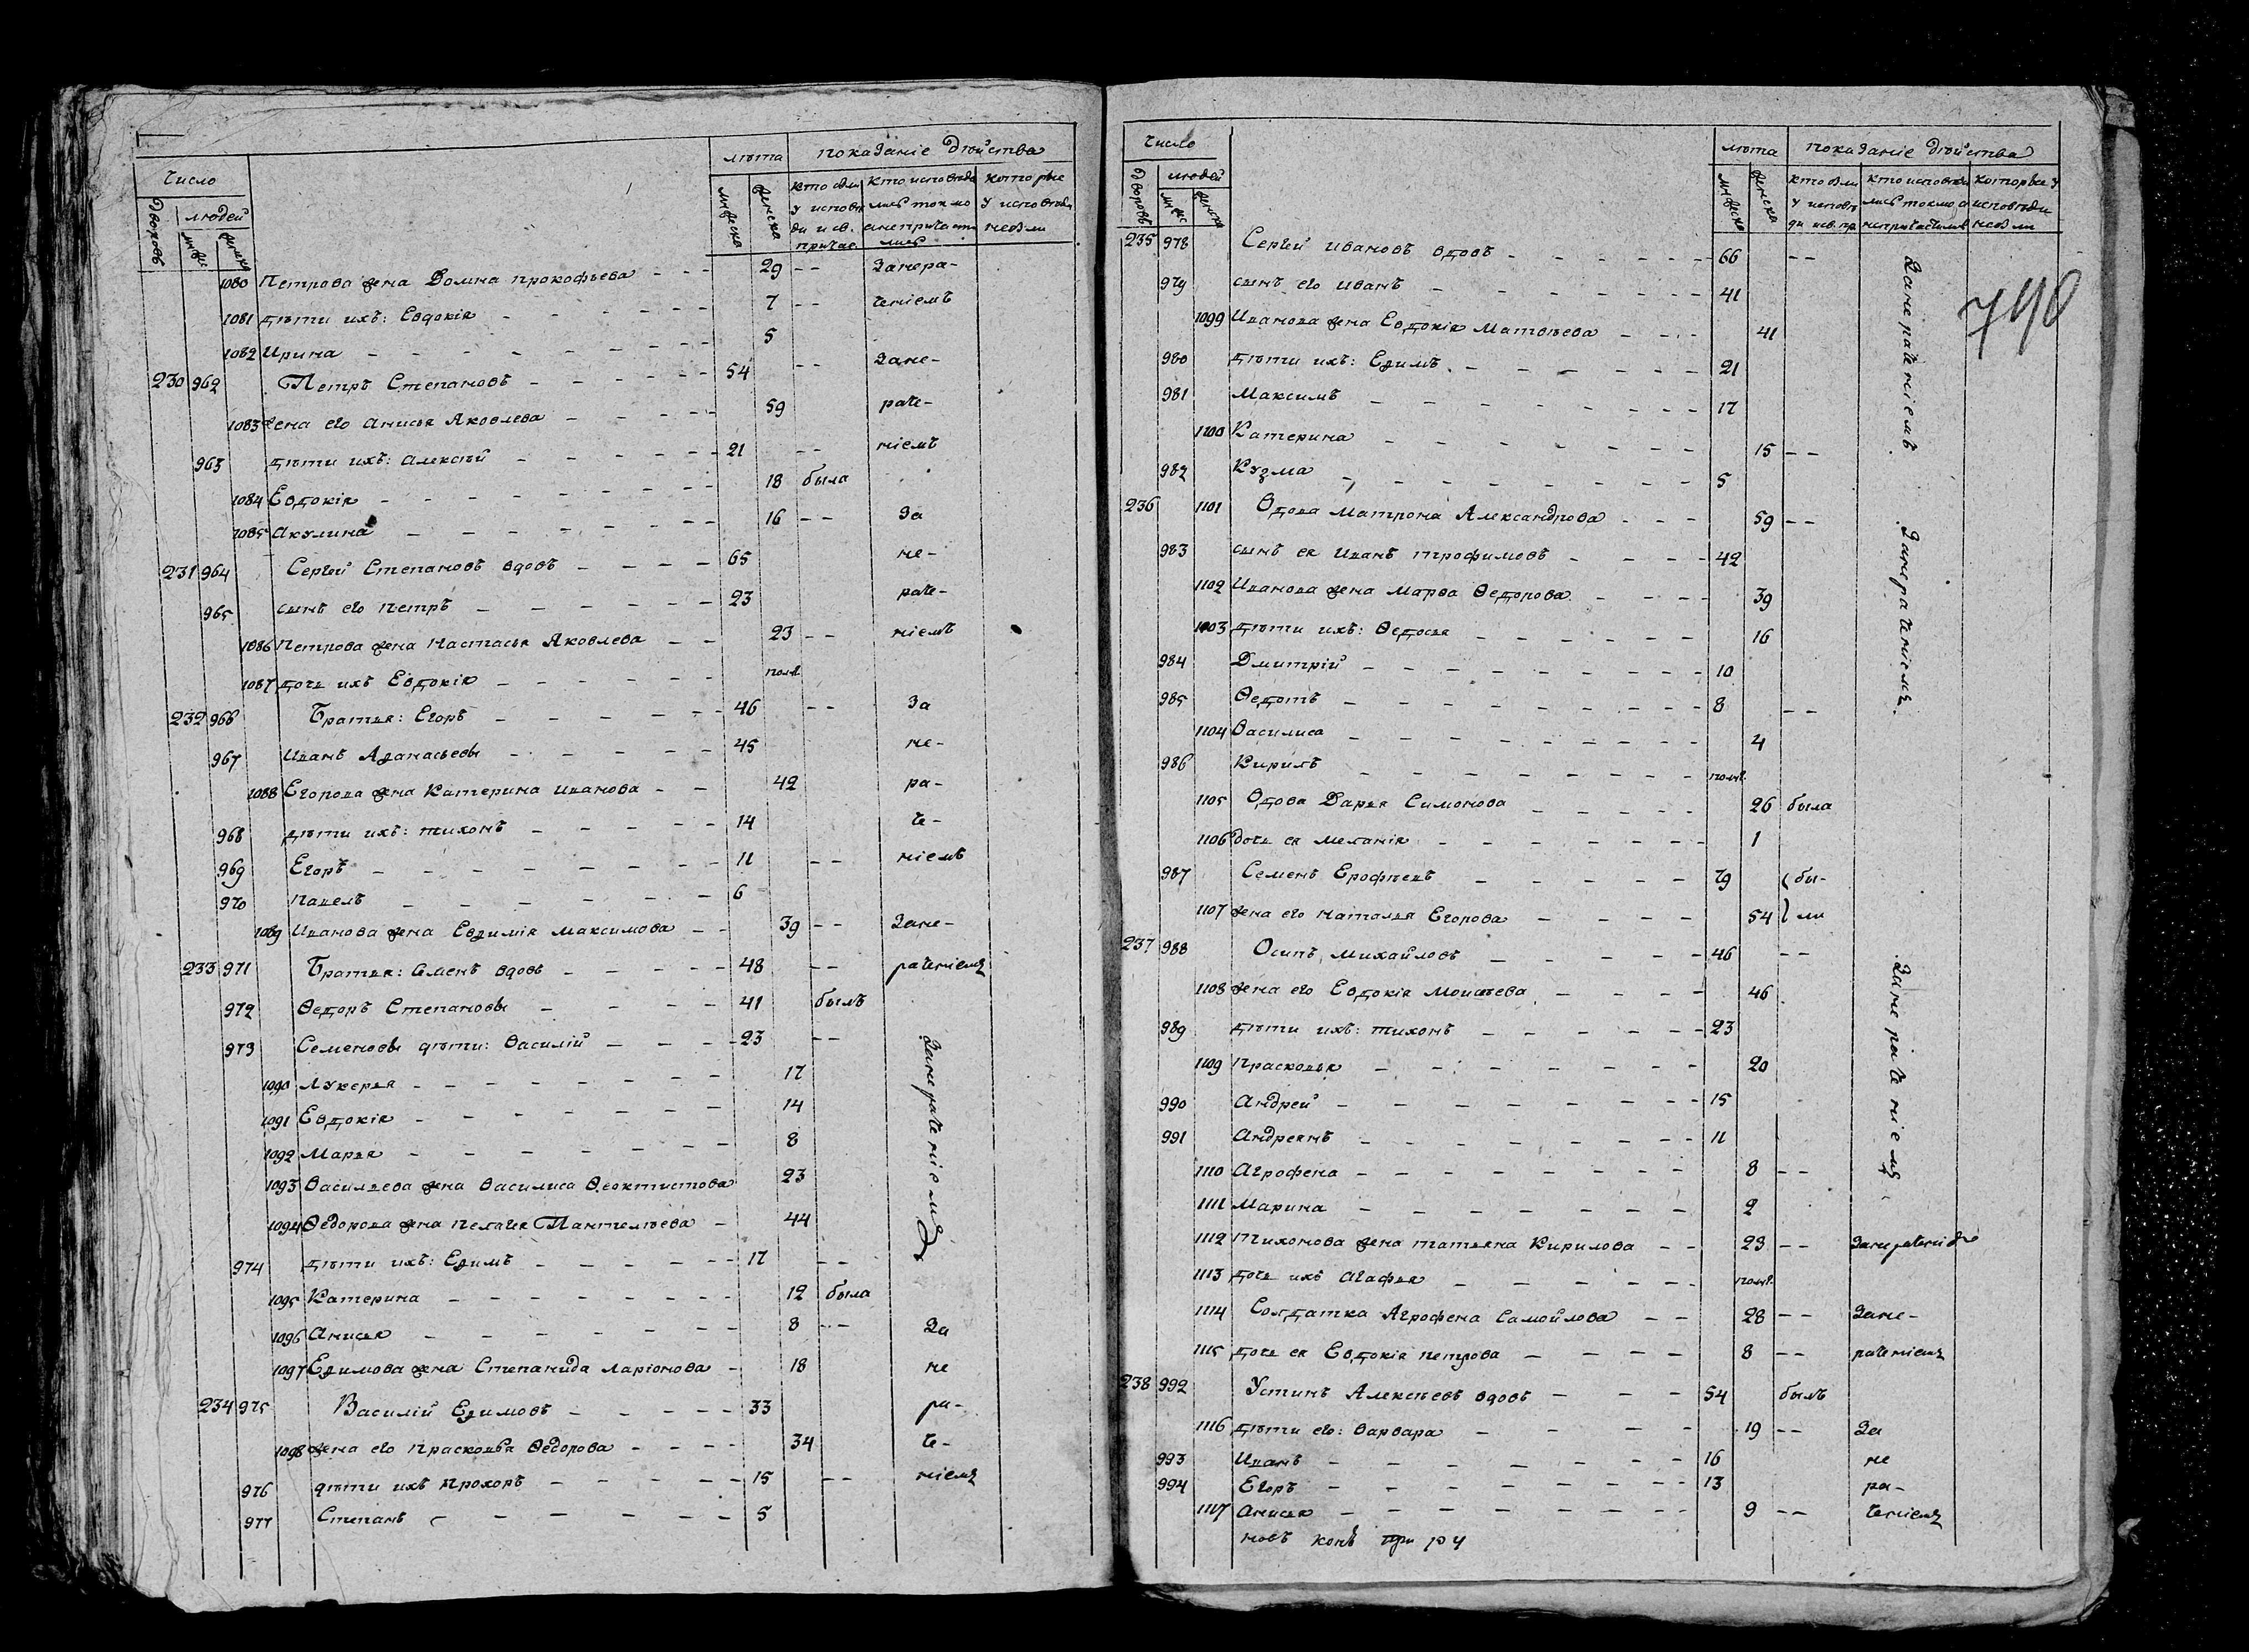 Число
лѣта показаніе дѣйства
дворовъ людей
мужес женска
мужеска женска
кто были у исповѣди и св. причас.
кто исповѣдались токмо а не причастились
которые у исповѣди не были
1080 Петрова жена Домна Прокофьева - - - 29 - - За нера-
1081 дѣти ихъ: Евдокія - - - - - - 7 - - ченіемъ
1082 Ирина - - - - - - - - 5
230 962 Петръ Степановъ - - - - - - 54 - - За не-
1083 жена его Анисья Яковлева - - - - - 59 раче-
963 дѣти ихъ: Алексѣй - - - - - - 21 - - ніемъ
1084 Евдокія - - - - - - - - 18 была
1085 Акулина - - - - - - - 16 - - За
231 964 Сергѣй Степановъ вдовъ - - - - 65 не-
965 сынъ его Петръ - - - - - - 23 раче-
1086 Петрова жена Настасья Яковлева - - 23 - - ніемъ
1087 дочь ихъ Евдокія - - - - - - полг.
232 966 Братья: Егоръ - - - - - - 46 - - За
967 Иванъ Афанасьевы - - - - - 45 не-
1088 Егорова жена Катерина Иванова - - 42 ра-
968 дѣти ихъ: Тихонъ - - - - - 14 че-
969 Егоръ - - - - - - - - 11 - - ніемъ
970 Павелъ - - - - - - - 6
1089 Иванова жена Евфимія Максимова - - 39 - - За не-
233 971 Братья: Семенъ вдовъ - - - - - 48 - - раченіемъ
972 Ѳедоръ Степановы - - - - 41 былъ
973 Семеновы дѣти: Василій - - - - 23 - -
За нераченіемъ
1090 Лукерья - - - - - - - - 17
1091 Евдокія - - - - - - - 14
1092 Марья - - - - - - - 8
1093 Васильева жена Василиса Ѳеоктистова 23
1094 Ѳедорова жена Пелагея Пантелѣева - 44
974 дѣти ихъ: Ефимъ - - - - - - 17 - -
1095 Катерина - - - - - - - - 12 была
1096 Анисья - - - - - - - 8 - - За
1097 Ефимова жена Степанида Ларіонова - 18 не
234 975 Василій Ефимовъ - - - - - 33 ра-
1098 жена его Прасковья Ѳедорова - - - - 34 че-
976 дѣти ихъ Прохоръ - - - - - - 15 - - ніемъ
977 Степанъ - - - - - - 5
Число
лѣта показаніе дѣйства
дворовъ людей
мужес женска
мужеска женска
кто были у исповѣди и св. пр.
кто исповѣдались токмо а не причастились
которые у исповѣди не были
790
235 978 Сергѣй Ивановъ вдовъ - - - - - - 66 - -
За нераченіемъ.
979 сынъ его Иванъ - - - - - - - 41
1099 Иванова жена Евдокія Матвѣева - - - 41
980 дѣти ихъ: Ефимъ - - - - - - 21
981 Максимъ - - - - - - - - 17
1100 Катерина - - - - - - - - 15 - -
982 Кузма - - - - - - - - 5
236 1101 Вдова Матрона Александрова - - - 59 - -
За нераченіемъ.
983 сынъ ея Иванъ Трофимовъ - - - - 42
1102 Иванова жена Марфа Ѳедорова - - - - 39
1103 дѣти ихъ: Ѳедосья - - - - - - 16
984 Дмитрій - - - - - - - - - 10
985 Ѳедотъ - - - - - - - - - 8 - -
1104 Василиса - - - - - - - - - 4
986 Кирилъ - - - - - - - - полг.
1105 Вдова Дарья Симонова - - - - - 26 была
1106 дочь ея Меланія - - - - - - - 1
987 Семенъ Ерофѣевъ - - - - - 79 бы-
1107 жена его Наталья Егорова - - - - 54 ли
237 988 Осипъ Михайловъ - - - - - 46 - -
За нераченіемъ
1108 жена его Евдокія Моисѣева - - - - 46
989 дѣти ихъ: Тихонъ - - - - - - 23
1109 Прасковья - - - - - - - - 20
990 Андрей - - - - - - - - 15
991 Андреянъ - - - - - - - - 11
1110 Агрофена - - - - - - - - 8 - -
1111 Марина - - - - - - - 2
1112 Тихонова жена Татьяна Кирилова - - 23 - - За нераченіе
1113 дочь ихъ Агафья - - - - - полг.
1114 Солдатка Агрофена Самойлова - - 28 - - За не-
1115 дочь ея Евдокія Петрова - - - - 8 - - раченіемъ
238 992 Устинъ Алексѣевъ вдовъ - - - 54 былъ
1116 дѣти его: Варвара - - - - 19 - - За
993 Иванъ - - - - - - - 16 не
994 Егоръ - - - - - - - 13 ра-
1117 Анисья - - - - - - - - 9 - - ченіемъ